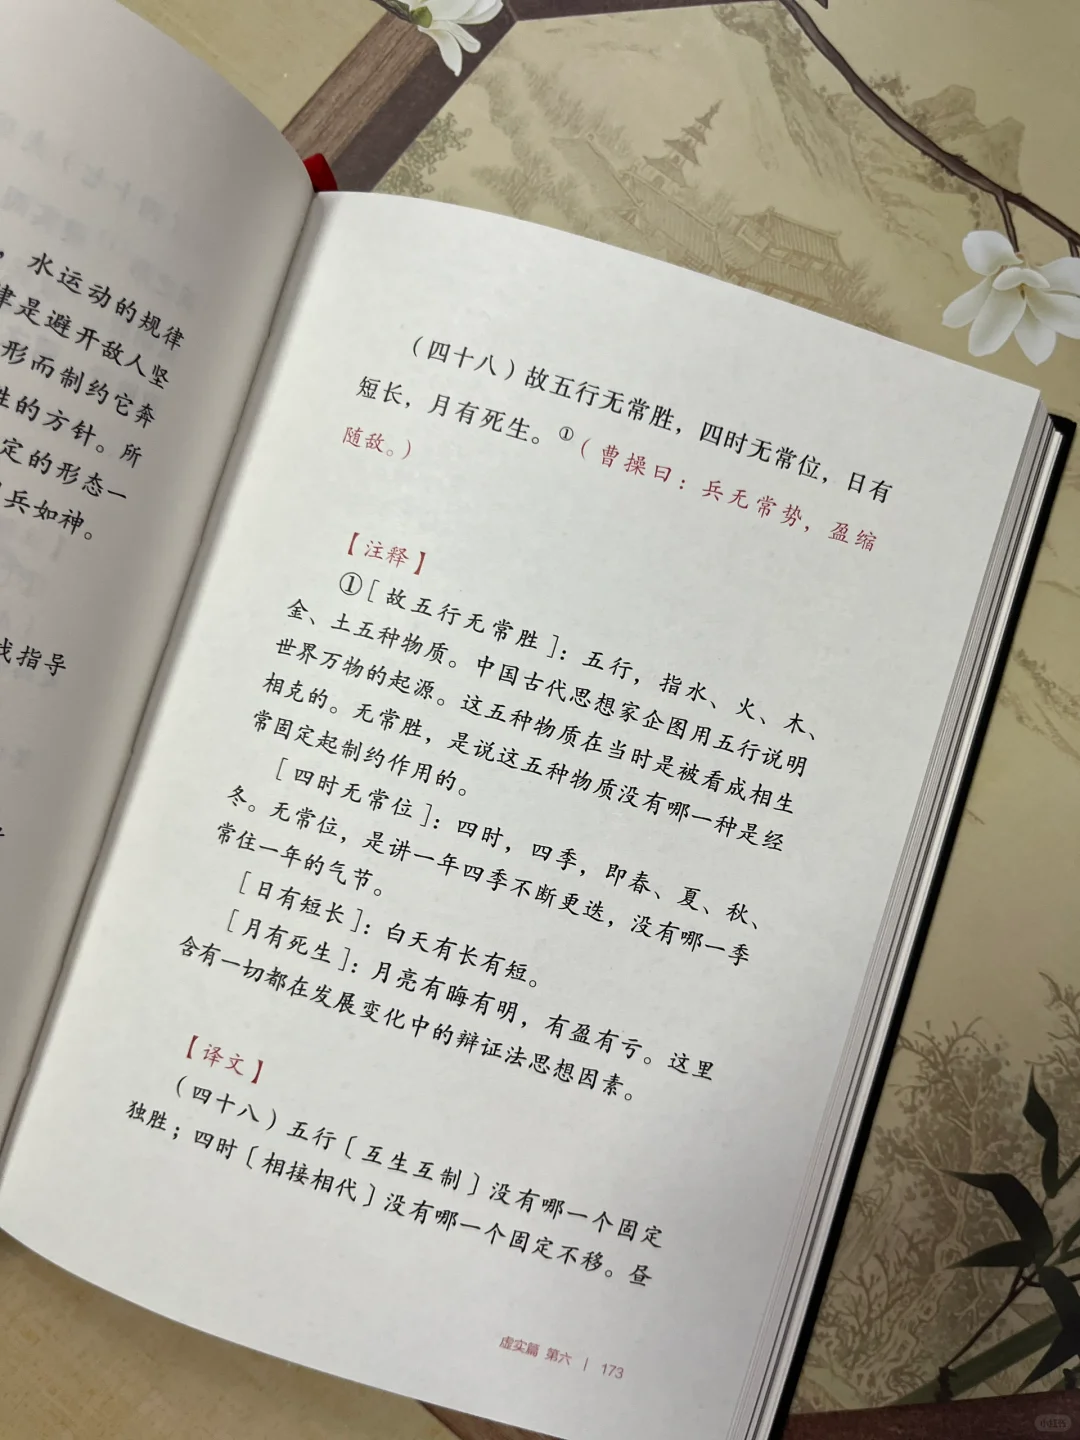 ，水运动的规律
律是避开敌人坚
形而制约它奔
性的方针。所
定的形态一
兵如神。
找指导
（四十八）故五行无常胜，四时无常位，日有
短长，月有死生。①（曹操曰：兵无常势，盈缩
随敌。）
【注释】
①［故五行无常胜］：五行，指水、火、木、
金、土五种物质。中国古代思想家企图用五行说明
世界万物的起源。这五种物质在当时是被看成相生
相克的。无常胜，是说这五种物质没有哪一种是经
常固定起制约作用的。
［四时无常位］：四时，四季，即春、夏、秋、
冬。无常位，是讲一年四季不断更迭，没有哪一季
常住一年的气节。
［日有短长］：白天有长有短。
［月有死生］：月亮有晦有明，有盈有亏。这里
含有一切都在发展变化中的辩证法思想因素。
【译文】
（四十八）五行〔互生互制〕没有哪一个固定
独胜；四时〔相接相代〕没有哪一个固定不移。昼
虚实篇 第六 | 173
小红书